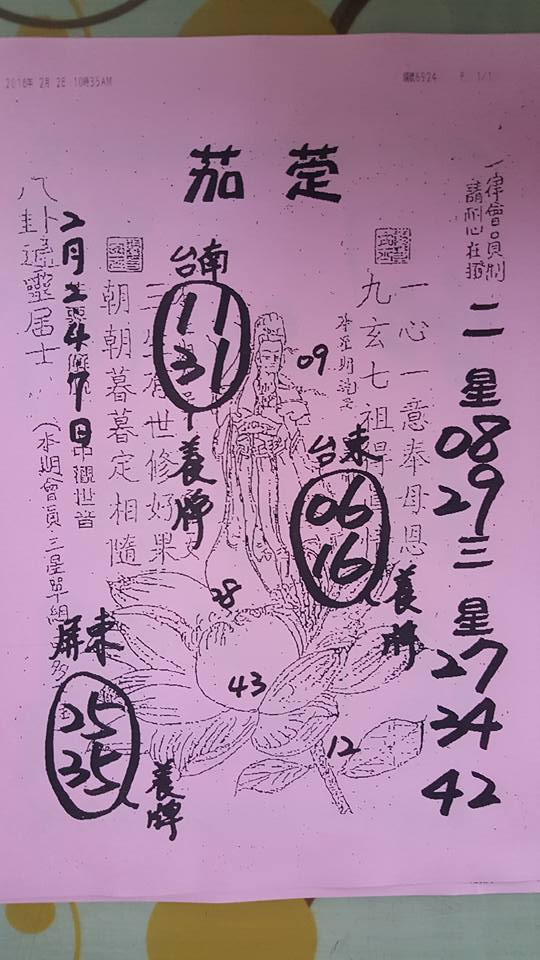 2016年 2月 26 10時35AM
編號6924 P. 1/1
茄萣
一律會員制
請耐心在撥
二星
08
29
三星
27
34
42
一心一意奉母恩
九玄七祖得
台南
11
31
養牌
09
台東
06
16
養牌
朝朝暮暮定相隨
世修好果
中觀世音
2月247日
八卦通靈居士
（本期會員三星單組
28
43
12
屏東
25
35
養牌